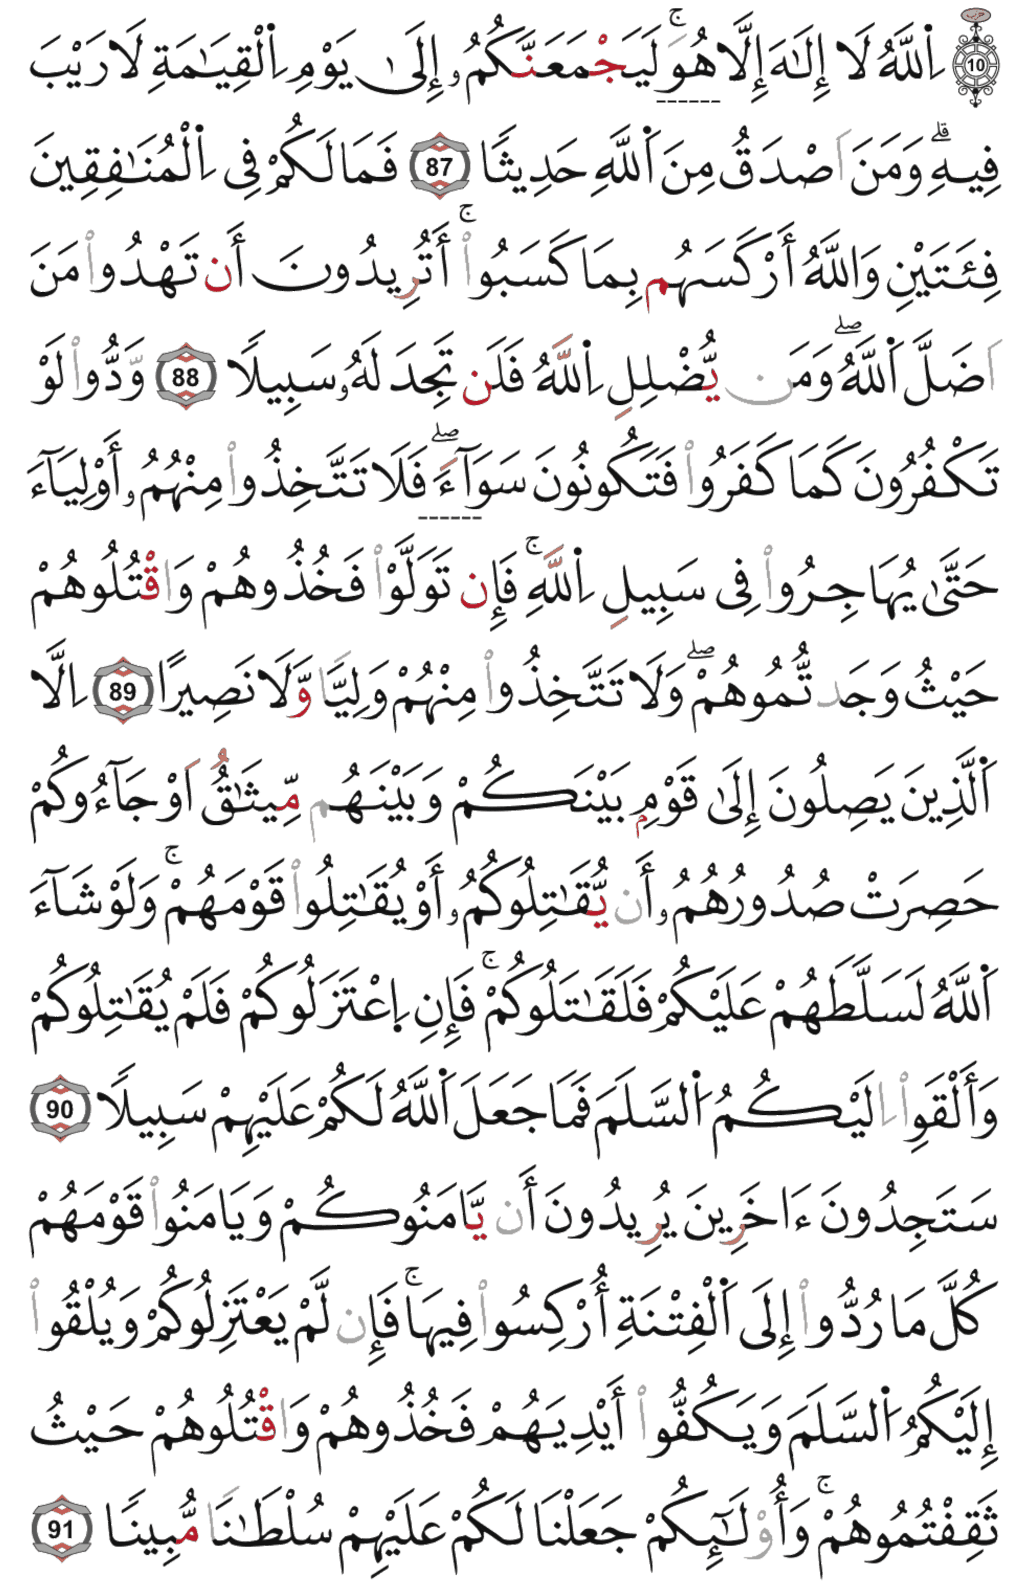 10 اَ۬للَّهُ لَا إِلَٰهَ إِلَّا هُوَۖ لَيَجْمَعَنَّكُمُۥٓ إِلَىٰ يَوْمِ اِ۬لْقِيَٰمَةِ لَا رَيْبَ
فِيهِۗ وَمَنَ اَصْدَقُ مِنَ اَ۬للَّهِ حَدِيثًا 87 فَمَا لَكُمْ فِي اِ۬لْمُنَٰفِقِينَ
فِئَتَيْنِ وَاللَّهُ أَرْكَسَهُم بِمَا كَسَبُواْۚ أَتُرِيدُونَ أَن تَهْدُواْ مَنَ
اَضَلَّ اَ۬للَّهُۖ وَمَن يُّضْلِلِ اِ۬للَّهُ فَلَن تَجِدَ لَهُۥ سَبِيلًا 88 وَدُّواْ لَوْ
تَكْفُرُونَ كَمَا كَفَرُواْ فَتَكُونُونَ سَوَآءًۖ فَلَا تَتَّخِذُواْ مِنْهُمُۥٓ أَوْلِيَآءَ
حَتَّىٰ يُهَاجِرُواْ فِي سَبِيلِ اِ۬للَّهِۚ فَإِن تَوَلَّوْاْ فَخُذُوهُمْ وَاقْتُلُوهُمْ
حَيْثُ وَجَدتُّمُوهُمْۖ وَلَا تَتَّخِذُواْ مِنْهُمْ وَلِيًّا وَّلَا نَصِيرًا 89 اِلَّا
اَ۬لَّذِينَ يَصِلُونَ إِلَىٰ قَوْمِۭ بَيْنَكُمْ وَبَيْنَهُم مِّيثَٰقٌ اَوْ جَآءُوكُمْ
حَصِرَتْ صُدُورُهُمُۥٓ أَن يُّقَٰتِلُوكُمُۥٓ أَوْ يُقَٰتِلُواْ قَوْمَهُمْۚ وَلَوْ شَآءَ
اَ۬للَّهُ لَسَلَّطَهُمْ عَلَيْكُمْ فَلَقَٰتَلُوكُمْۚ فَإِنِ اِ۪عْتَزَلُوكُمْ فَلَمْ يُقَٰتِلُوكُمْ
وَأَلْقَوِاْ اِلَيْكُمُ اُ۬لسَّلَمَ فَمَا جَعَلَ اَ۬للَّهُ لَكُمْ عَلَيْهِمْ سَبِيلًا 90
سَتَجِدُونَ ءَاخَرِينَ يُرِيدُونَ أَن يَّامَنُوكُمْ وَيَامَنُواْ قَوْمَهُمْ
كُلَّ مَا رُدُّواْ إِلَى اَ۬لْفِتْنَةِ أُرْكِسُواْ فِيهَاۚ فَإِن لَّمْ يَعْتَزِلُوكُمْ وَيُلْقُواْ
إِلَيْكُمُ اُ۬لسَّلَمَ وَيَكُفُّواْ أَيْدِيَهُمْ فَخُذُوهُمْ وَاقْتُلُوهُمْ حَيْثُ
ثَقِفْتُمُوهُمْۚ وَأُوْلَٰٓئِكُمْ جَعَلْنَا لَكُمْ عَلَيْهِمْ سُلْطَٰنًا مُّبِينًا 91